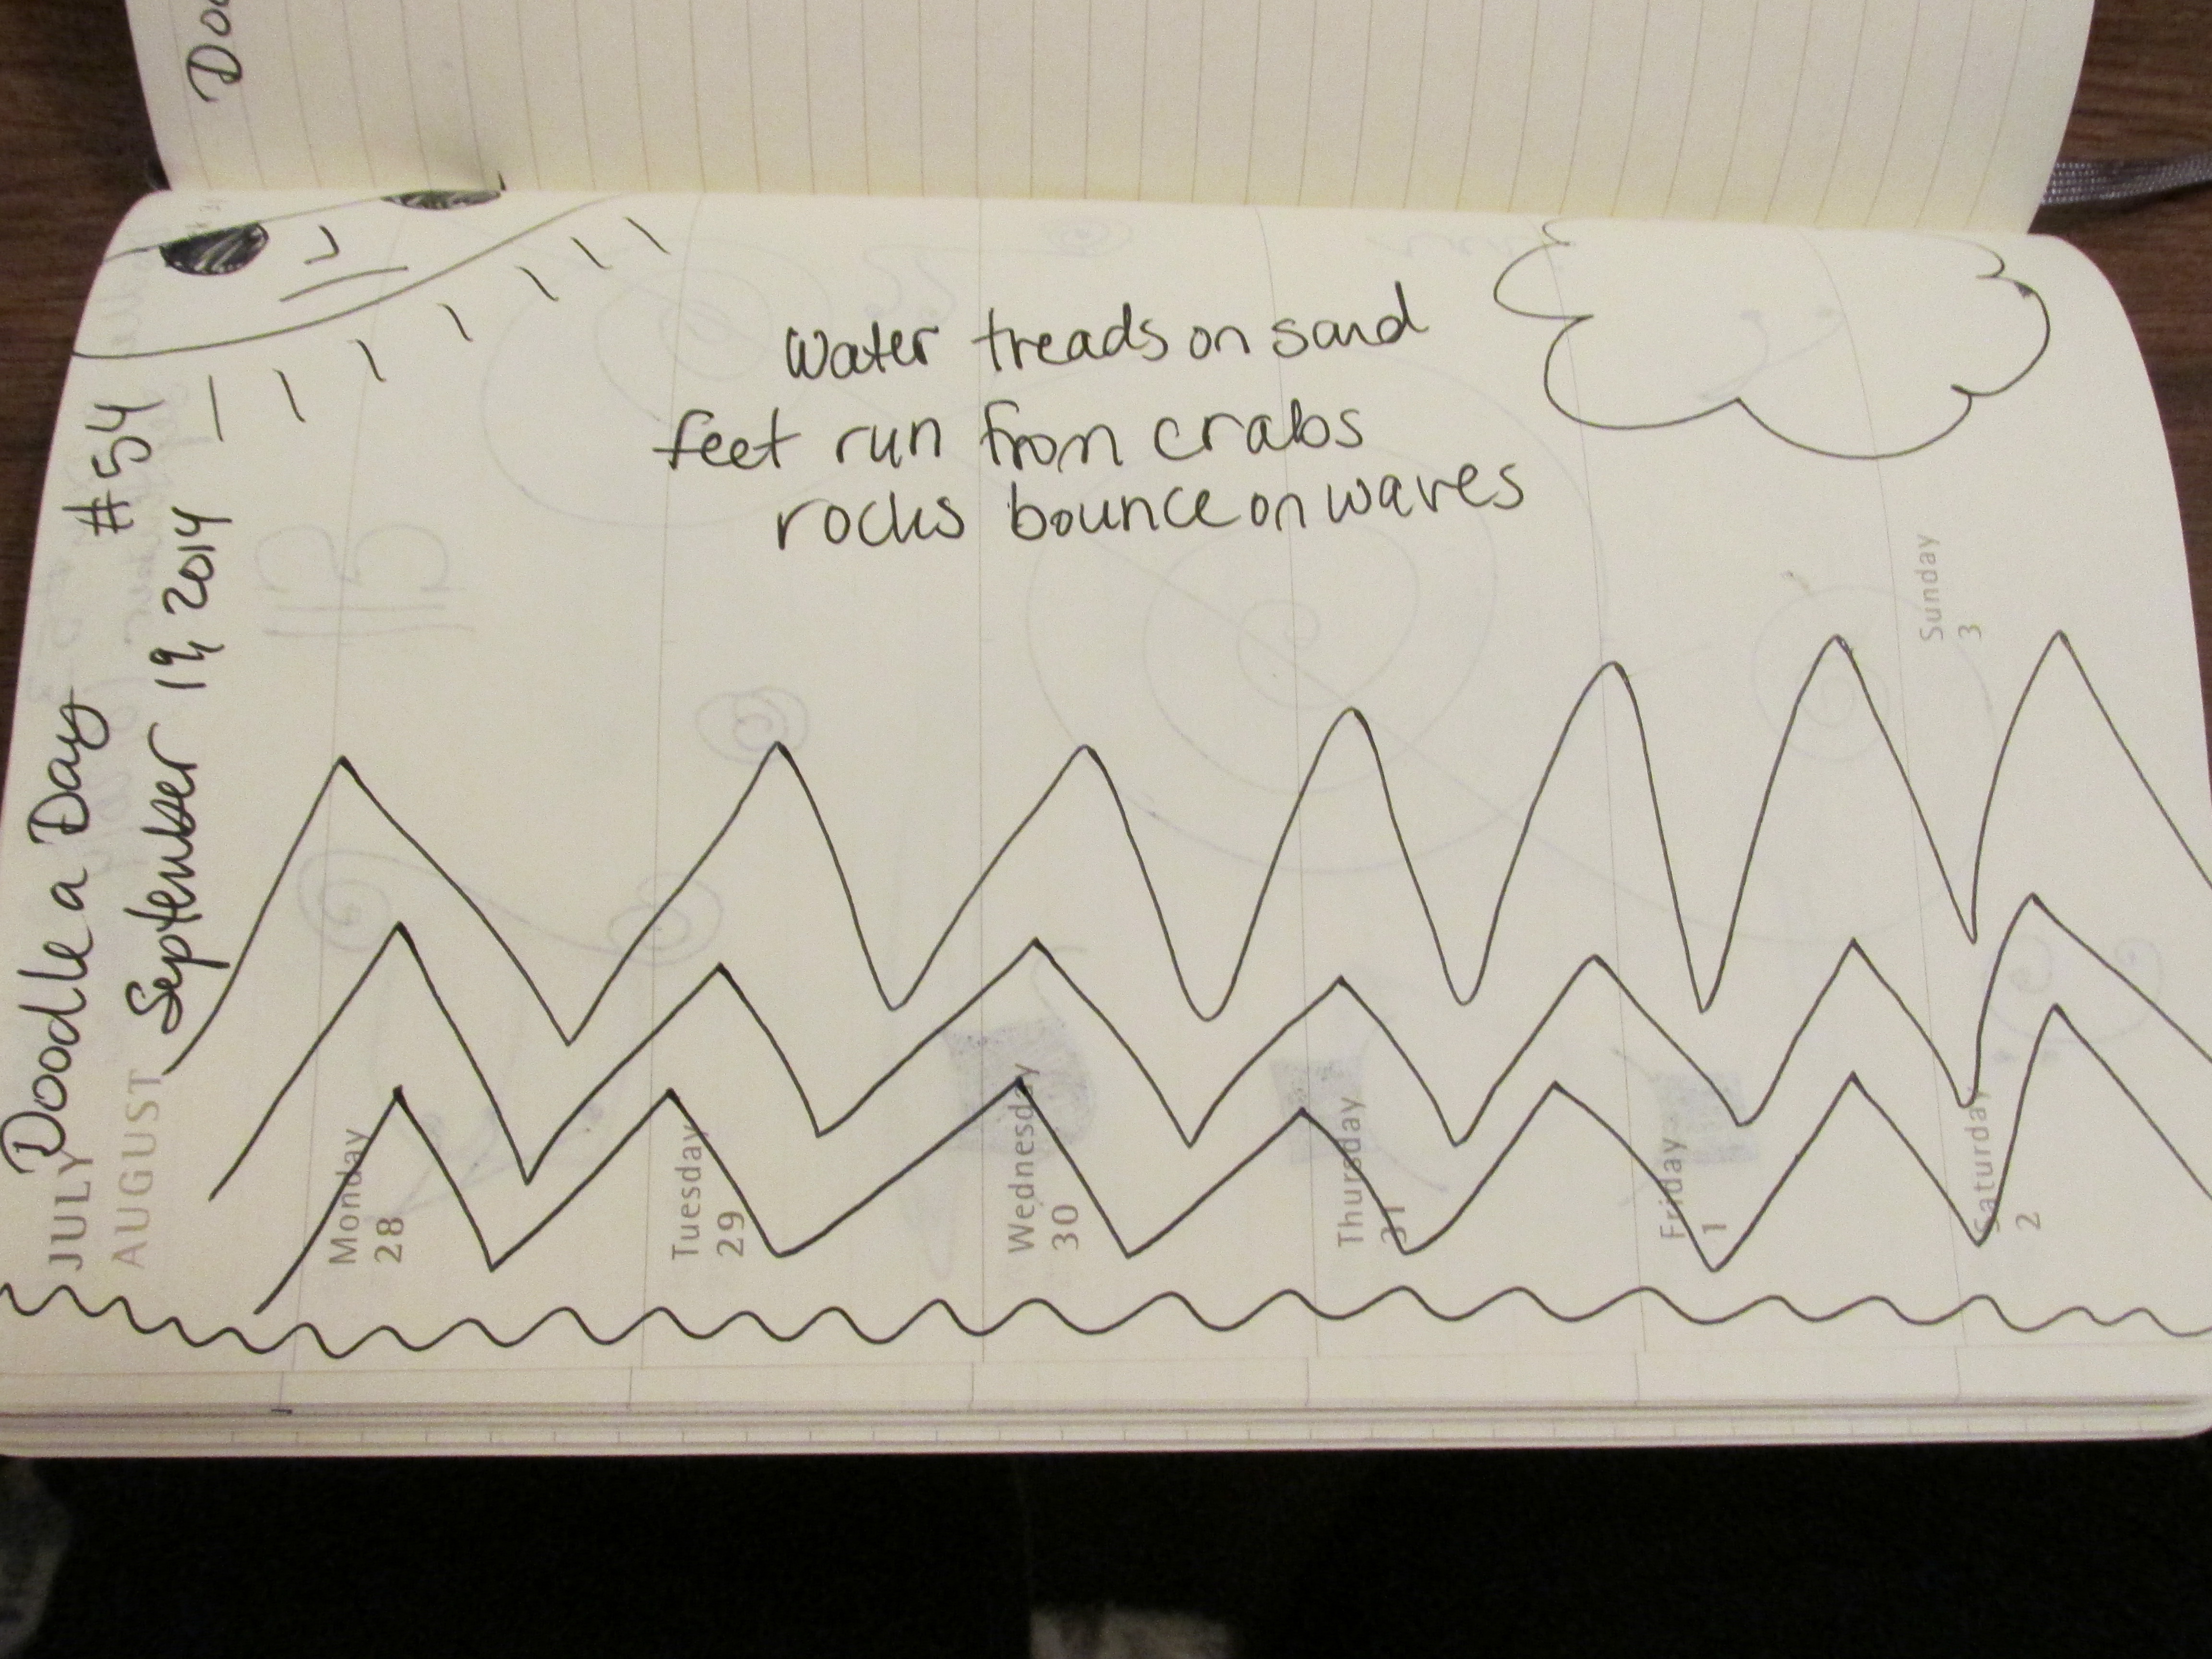 Doo
Water treads on sand
feet run from crabs
rocks bounce on waves
Doodle a Day #54
September 19, 2014
JULY
AUGUST
Monday
28
Tuesday
29
Wednesday
30
Thursday
31
Friday
1
Saturday
2
Sunday
3